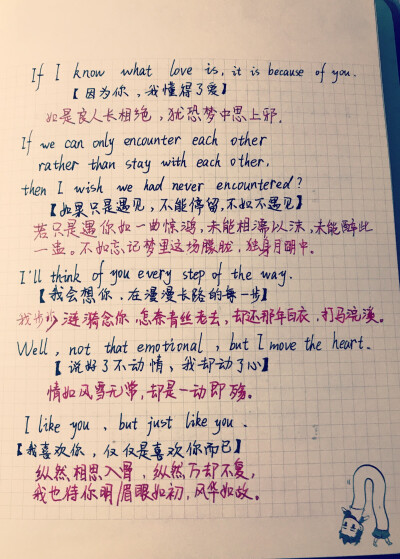 If I know what love is, it is because of you.
【因为你，我懂得了爱】
如是良人长相绝，犹恐梦中思上邪.
If we can only encounter each other
rather than stay with each other,
then I wish we had never encountered?
【如果只是遇见，不能停留，不如不遇见】
若只是遇你如一曲惊鸿，未能相濡以沫，未能醉此
一壶。不如忘记梦里这场朦胧，独身月明中.
I'll think of you every step of the way.
【我会想你，在漫漫长路的每一步】
我步步涟漪念你，怎奈青丝老去，却还那年白衣，打马浣溪。
Well, not that emotional, but I move the heart.
【说好了不动情、我却动了心】
情如风雪无常，却是一动即殇。
I like you, but just like you.
【我喜欢你，仅仅是喜欢你而已】
纵然相思入骨，纵然万劫不复，
我也待你明眉眼如初，风华如故。